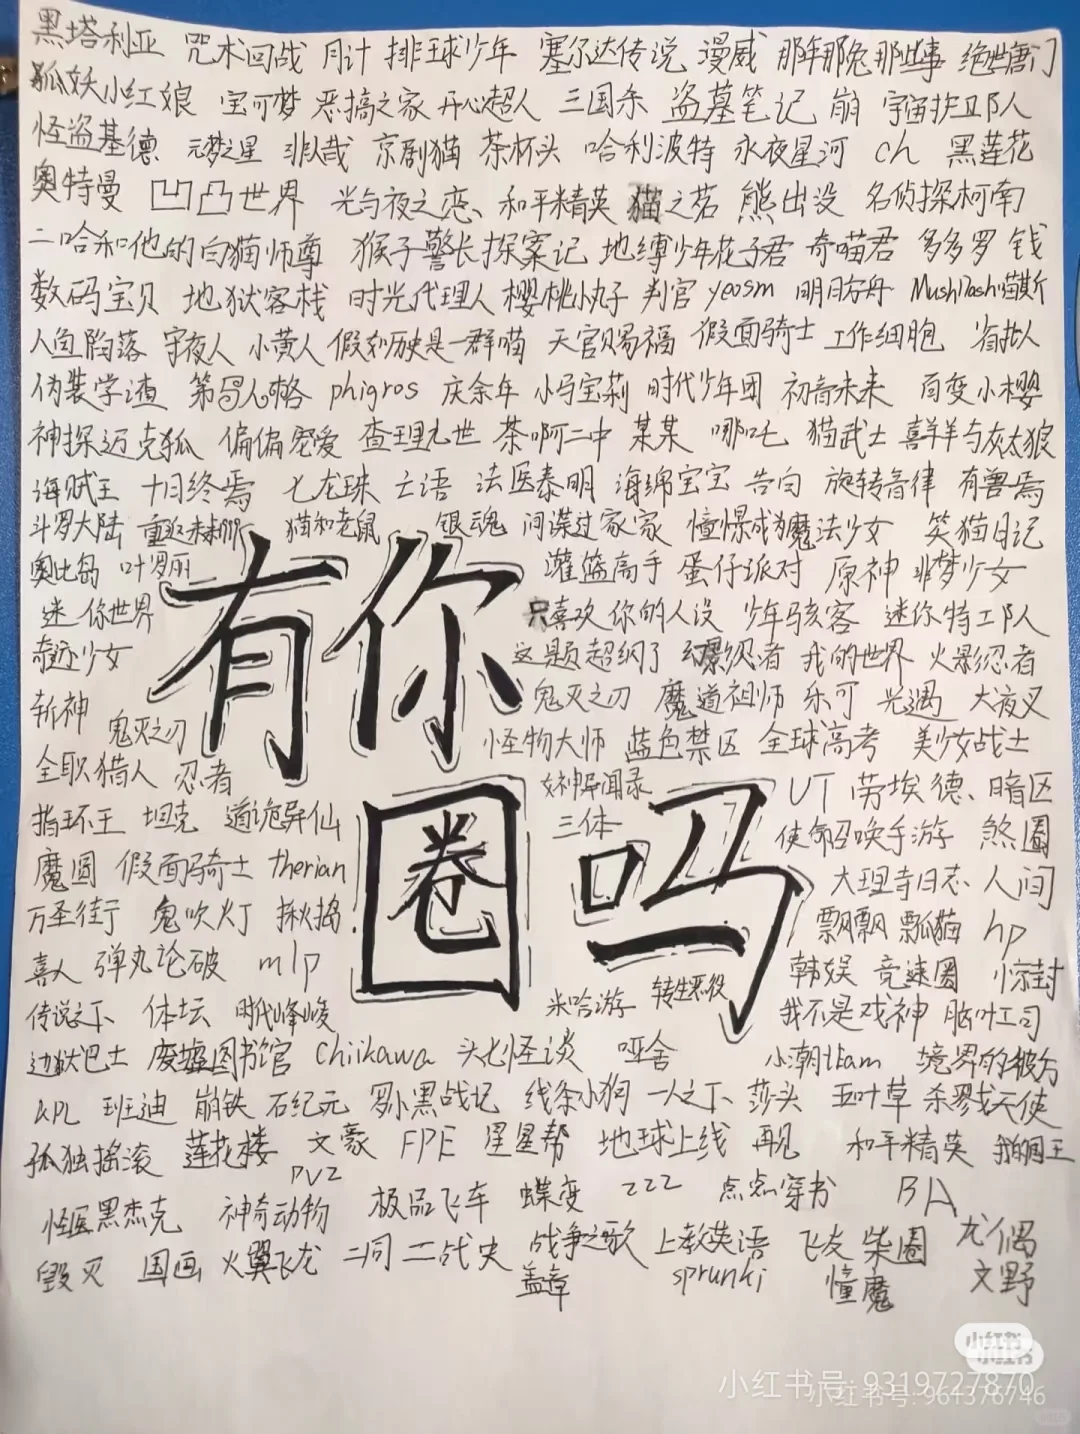 黑塔利亚 咒术回战 月计 排球少年 塞尔达传说 漫威 那年那兔那些事 绝世唐门
狐妖小红娘 宝可梦 恶搞之家 开心超人 三国杀 盗墓笔记 崩 宇宙护卫队
怪盗基德 元梦之星 非人哉 京剧猫 茶杯头 哈利波特 永夜星河 ch 黑莲花
奥特曼 凹凸世界 光与夜之恋、和平精英 猫之茗 熊出没 名侦探柯南
二哈和他的白猫师尊 猴子警长探案记 地缚少年花子君 奇喵君 多多罗 钱
数码宝贝 地狱客栈 时光代理人 樱桃小丸子 判官 yeosm 明日方舟 MushDash喵斯
人鱼陷落 守夜人 小黄人 假如历史是一群喵 天官赐福 假面骑士 工作细胞 省拟人
伪装学渣 第五人格 phigros 庆余年 小马宝莉 时代少年团 初音未来 百变小樱
神探迈克狐 偏偏宠爱 查理九世 茶啊二中 某某 哪吒 猫武士 喜羊羊与灰太狼
海贼王 十日终焉 七龙珠 亡语 法医秦明 海绵宝宝 告白 旋转音律 有兽焉
斗罗大陆 重返未来 猫和老鼠 银魂 间谍过家家 憧憬成为魔法少女 笑猫日记
奥比岛 叶罗丽 灌篮高手 蛋仔派对 原神 非梦少女
迷你世界 只喜欢你的人设 少年骇客 迷你特工队
奇迹少女 这题超纲了 幻影忍者 我的世界 火影忍者
斩神 鬼灭之刃 鬼灭之刃 魔道祖师 乐可 光遇 犬夜叉
怪物大师 蓝色禁区 全球高考 美少女战士
有你
全职猎人 忍者 女神异闻录 UT 劳埃德、暗区
指环王 坦克 道诡异仙 三体 使命召唤手游 煞圈
魔圆 假面骑士 therian 大理寺日志 人间
圈吗
万圣街 鬼吹灯 揪捣 飘飘 瓢猫 hp
喜人 弹丸论破 mlp 韩娱 竞速圈 惊封
传说之下 体坛 时代峰峻 米哈游 转生恶役 我不是戏神 脑叶公司
边狱巴士 废墟图书馆 Chiikawa 头七怪谈 哑舍 小潮team 境界的彼方
KPL 班迪 崩铁 石纪元 罗小黑战记 线条小狗 一人之下 莎头 五叶草 杀戮天使
孤独摇滚 莲花楼 文豪 FPE 星星帮 地球上线 再见 和平精英 我的国王
PVZ
怪医黑杰克 神奇动物 极品飞车 蝶变 ZZZ 点点穿书 BA
毁灭 国画 火翼飞龙 二同 二战史 战争之歌 上教英语 飞友 柴圈 龙偶
盖章 sprunki 憧魔 文野
小红书
小红书
小红书号: 9319727870
小红书号: 961376746